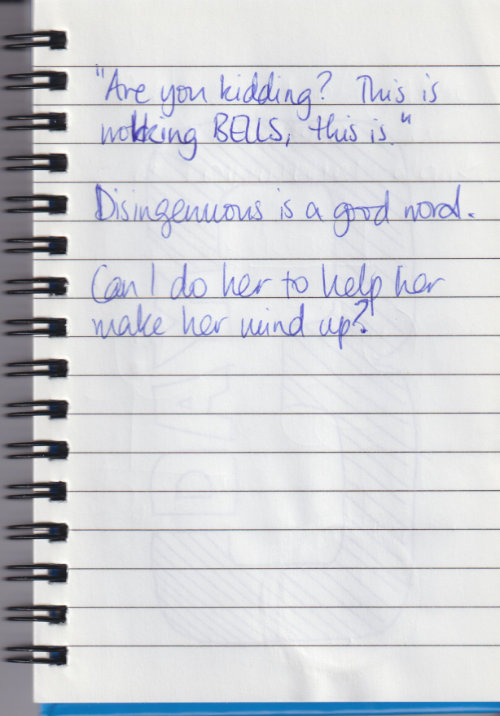 "Are you kidding? This is
wokking BELLS, this is."
Disingenuous is a good word.
Can I do her to help her
make her mind up?